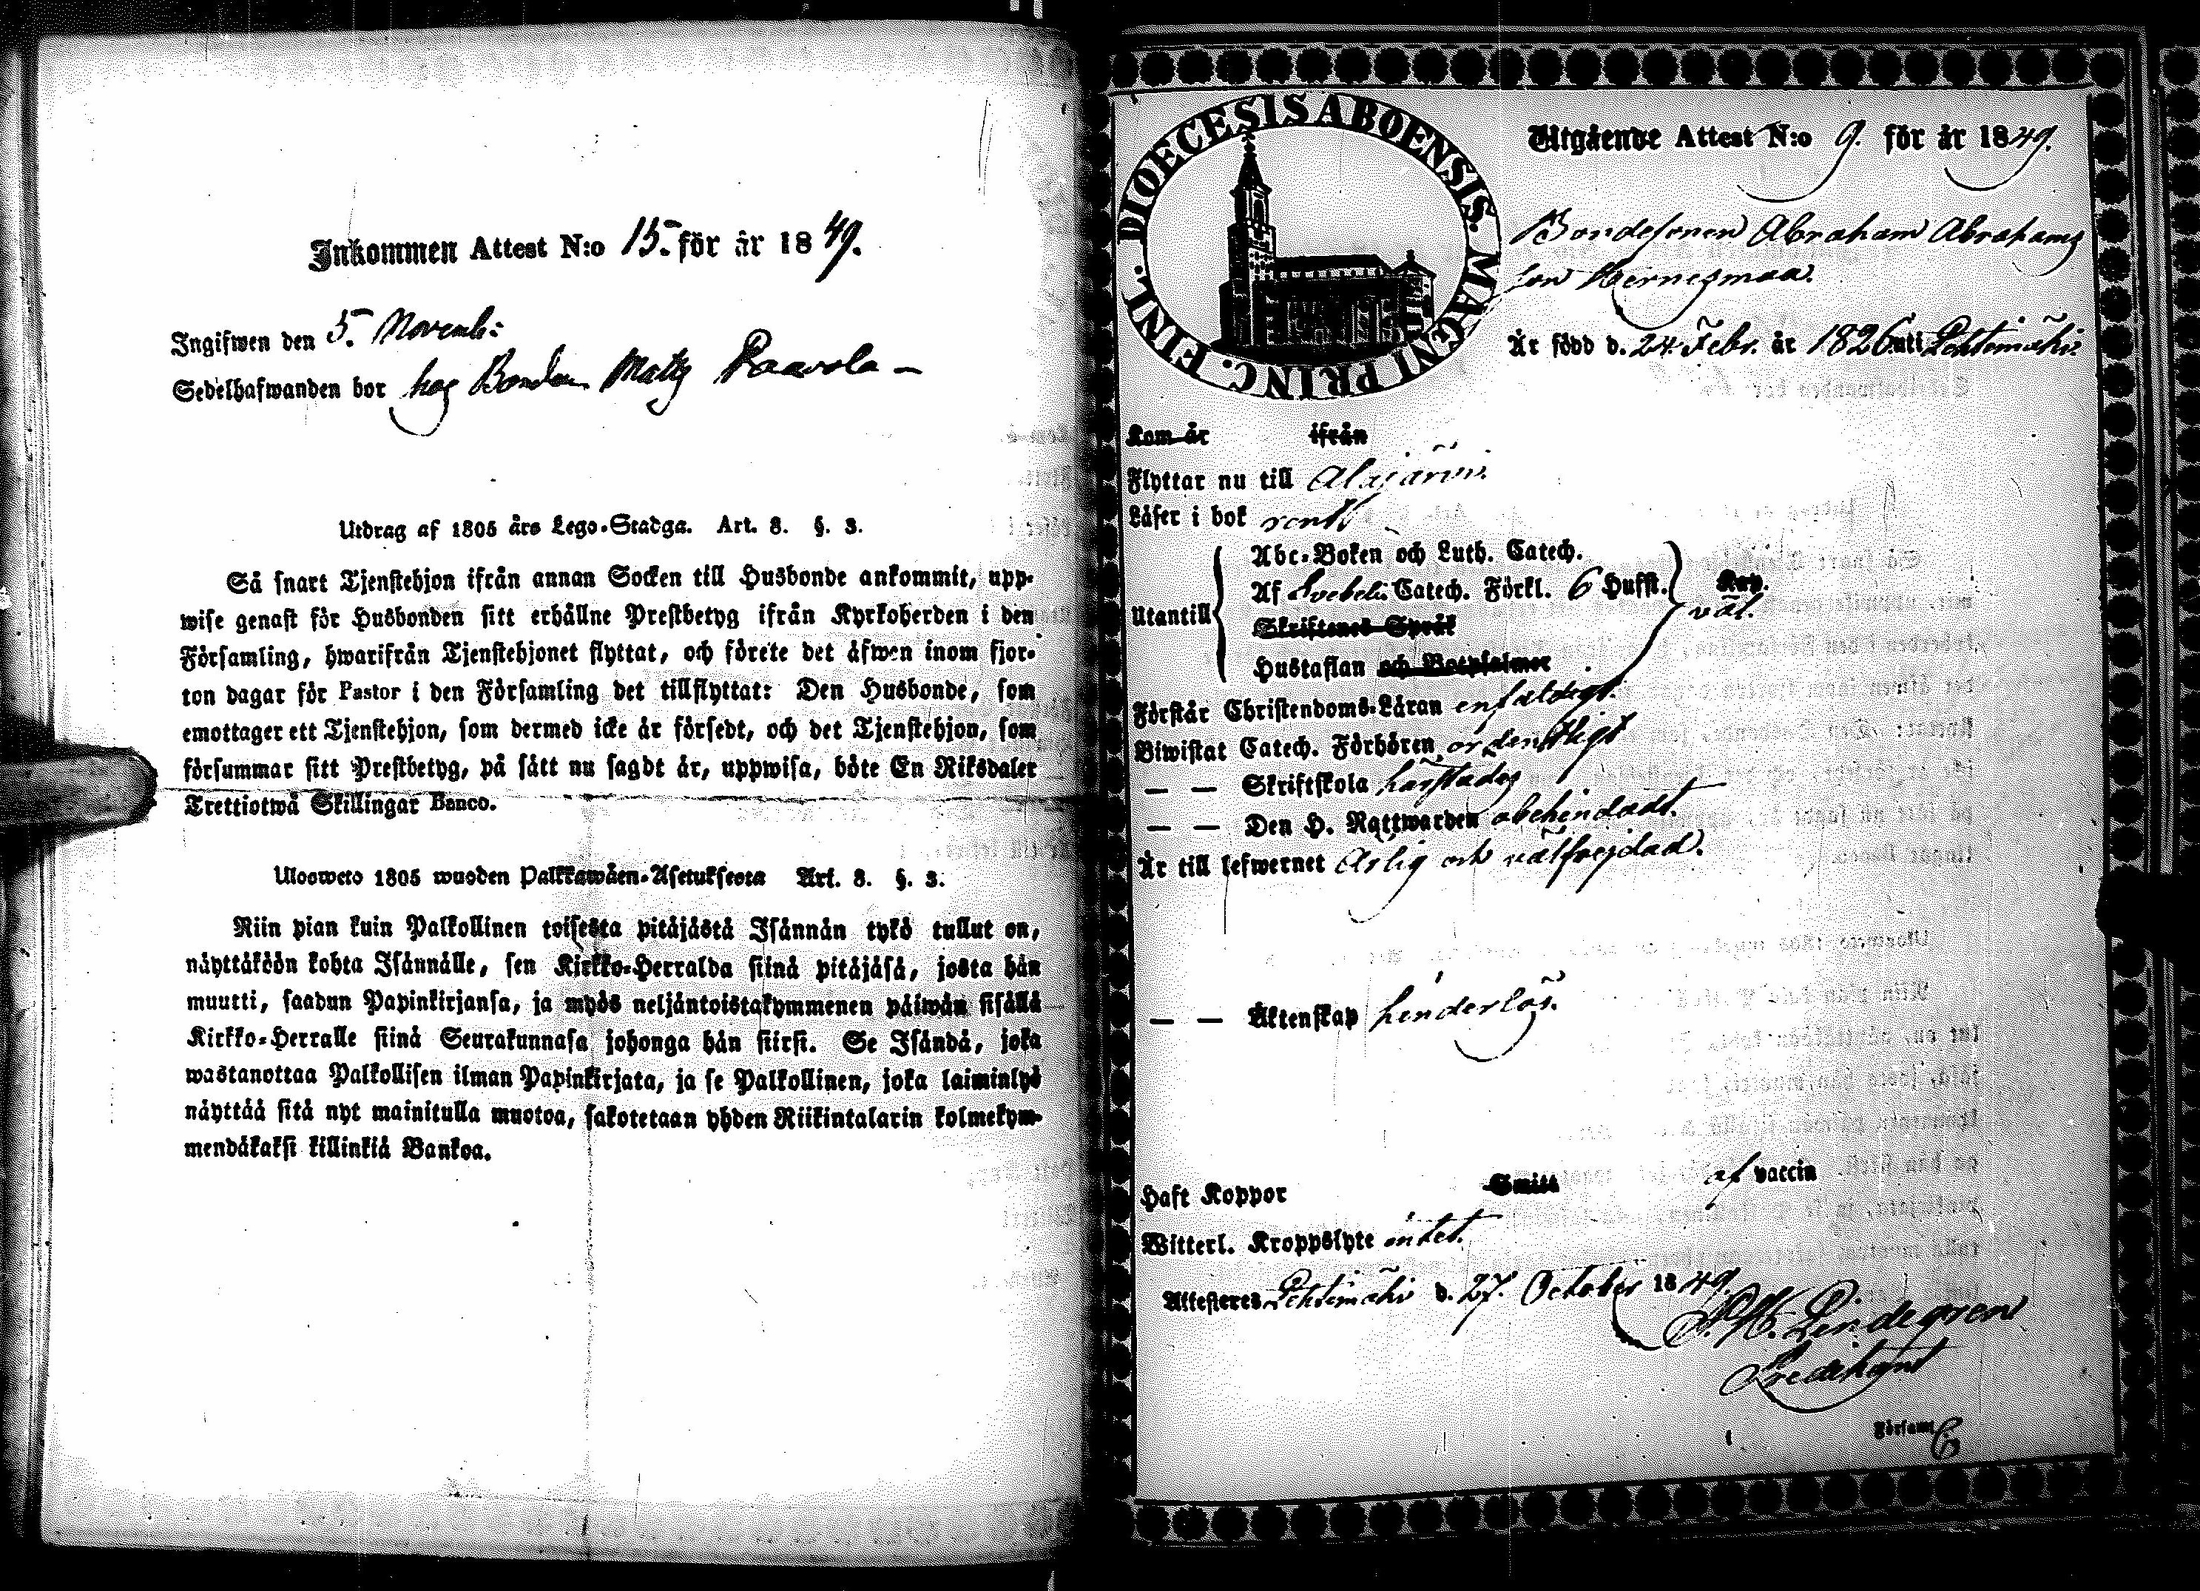 Inkommen Attest N:o 15. för år 1849.
Ingifwen den 5. Novemb:
Sedelhafwanden bor hos Bonden Matts Paavola –
Utdrag af 1805 års Lego-Stadga. Art. 8. §. 3.
Så snart Tjenstehjon ifrån annan Socken till Husbonde ankommit, upp-
wise genast för Husbonden sitt erhållne Prestbetyg ifrån Kyrkoherden i den
Församling, hwarifrån Tjenstehjonet flyttat, och förete det äfwen inom fjor-
ton dagar för Pastor i den Församling det tillflyttat: Den Husbonde, som
emottager ett Tjenstehjon, som dermed icke är försedt, och det Tjenstehjon, som
försummar sitt Prestbetyg, på sätt nu sagdt är, uppwisa, böte En Riksdaler
Trettiotwå Skillingar Banco.
Ulosweto 1805 wuoden Palkkawäen-Asetuksesta Art. 8. §. 3.
Niin pian kuin Palkollinen toisesta pitäjästä Isännän tykö tullut on,
näyttäköön kohta Isännälle, sen Kirkko-Herralda siinä pitäjäsä, josta hän
muutti, saadun Papinkirjansa, ja myös neljäntoistakymmenen päiwän sisällä
Kirkko-Herralle siinä Seurakunnasa johonga hän siirsi. Se Isändä, joka
wastanottaa Palkollisen ilman Papinkirjata, ja se Palkollinen, joka laiminlyö
näyttää sitä nyt mainitulla muotoa, sakotetaan yhden Riikintalarin kolmekym-
mendäkaksi killinkiä Bankoa.
DIOECESIS ABOENSIS. MAGNI PRINC. FINL.
Utgående Attest N:o 9. för år 1849.
Bondesonen Abraham Abrahams
son Hernesmaa.
Är född d. 24. Febr. år 1826 uti Lehtimäki.
Kom år ifrån
Flyttar nu till Alajärvi.
Läser i bok rent
Abc-Boken och Luth. Catech.
Utantill Af Svebelii Catech. Förkl. 6 Hufst. väl.
Skriftenes Språk
Hustaflan och Botpsalmer
Förstår Christendoms-Läran enfaldigt.
Biwistat Catech. Förhören ordentligt
— — Skriftskola härstädes
— — Den H. Nattwarden obehindradt.
Är till lefwernet ärlig och välfrejdad.
— — Äktenskap hinderlös.
Haft Koppor Smitt af vaccin
Witterl. Kroppslyte intet.
Attesteres Lehtimäki d. 27. October 1849.
Lindegren
Predikant
Församl